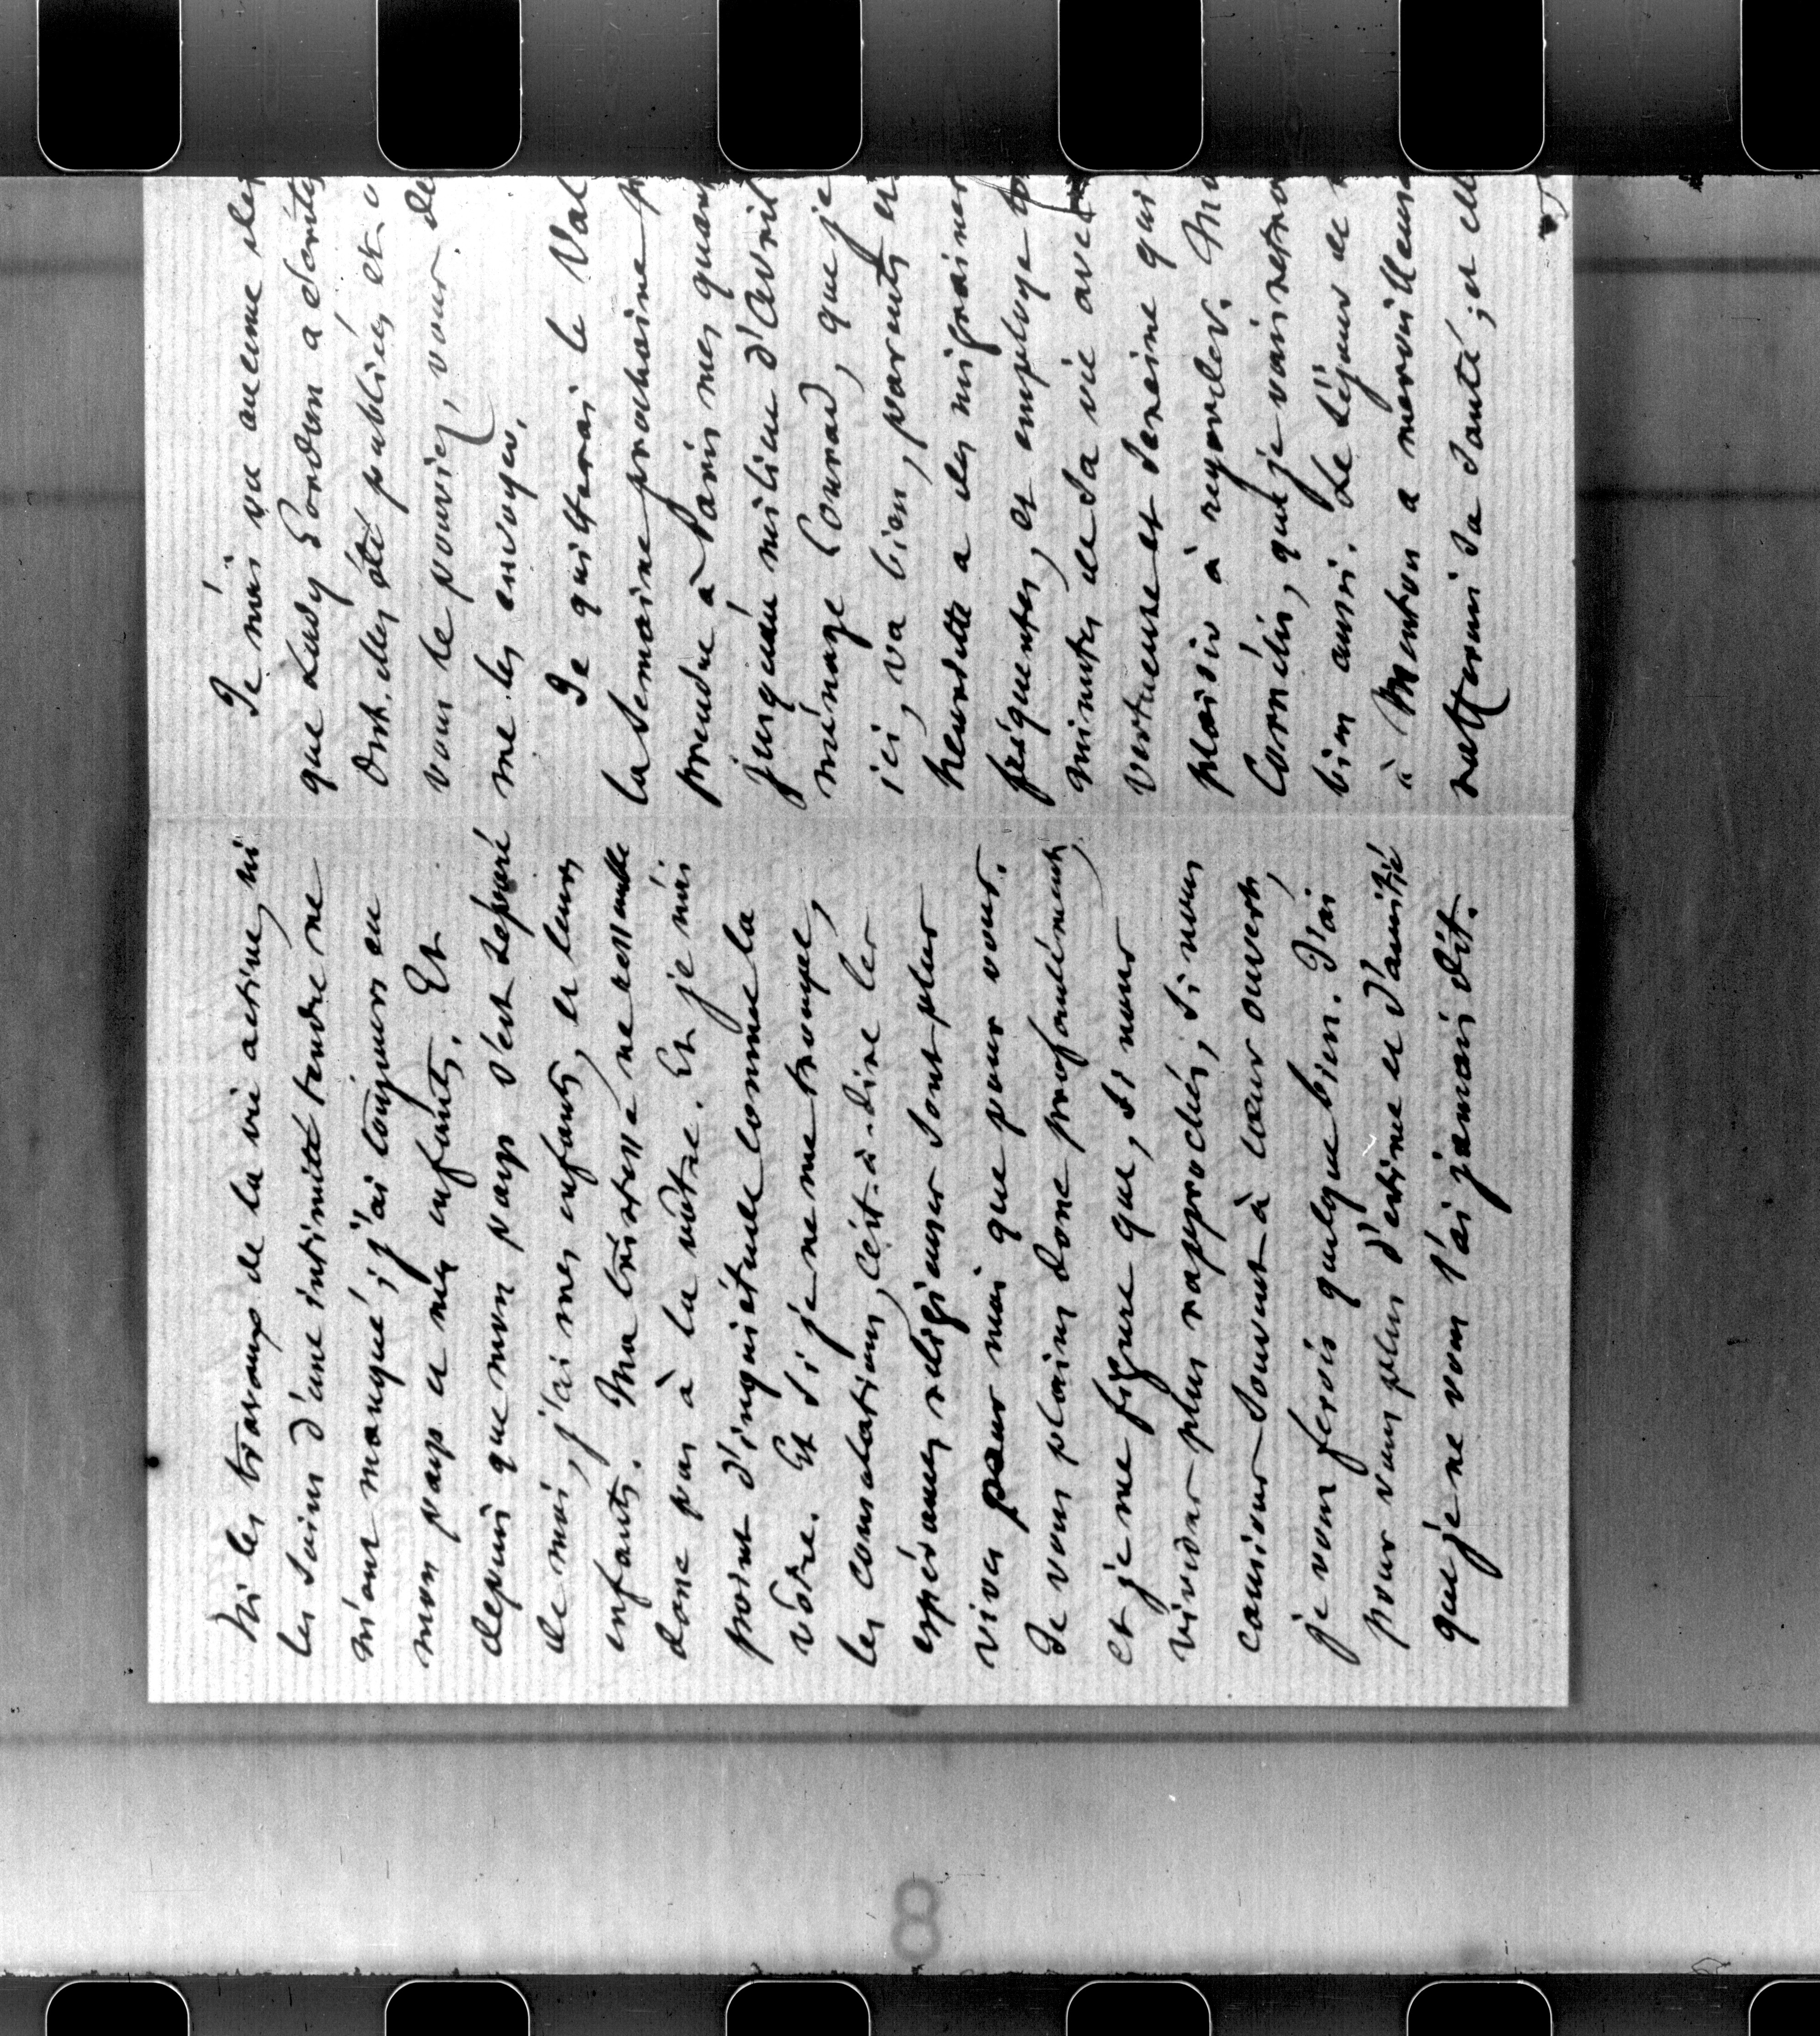 Ni les travaux de la vie active, ni
les soins d'une intimité tendre ne
m'ont manqué ; j'ai toujours eu
mon pays et mes enfants. Et
depuis que mon pays s'est séparé
de moi, j'ai mes enfants, et leurs
enfants. Ma tristesse ne ressemble
donc pas à la vôtre. Et je n'ai
point d'inquiétude comme la
vôtre. Et si je ne me trompe,
les consolations, c'est-à-dire les
espérances religieuses sont plus
vives pour moi que pour vous.
Je vous plains donc profondément,
et je me figure que, si nous
vivions plus rapprochés, si nous
causions souvent à cœur ouvert,
je vous ferois quelque bien. J'ai
pour vous plus d'estime et d'amitié
que je ne vous l'ai jamais dit.
Je n'ai vu aucune des
que Lady Gordon a
Ont-elles été publiées et
vous le pouviez, vous de
me les envoyer.
Je quitterai le Val
la semaine prochaine
prendre à Paris mes quar
jusqu'au milieu d'Avril
ménage Conrad, que je
ici, va bien, parents et
Henriette a des migraines
fréquentes, et employe
minutes de sa vie avec
vertueuse et sereine qui
plaisir à regarder. Ma
Cornélis, que je vais retro
bien aussi. Le séjour de
à Menton a merveilleuse
raffermi sa santé ; et elle
8